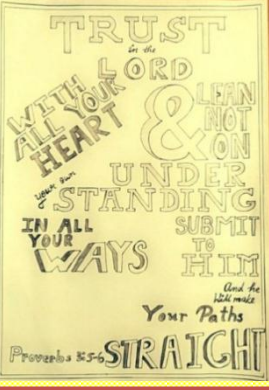 TRUST
in the
LORD
WITH
ALL YOUR
HEART
& LEAN
NOT
ON
your own
UNDER
STANDING
IN ALL
YOUR
WAYS
SUBMIT
TO
HIM
And he
will make
Your Paths
STRAIGHT
Proverbs 3:5-6